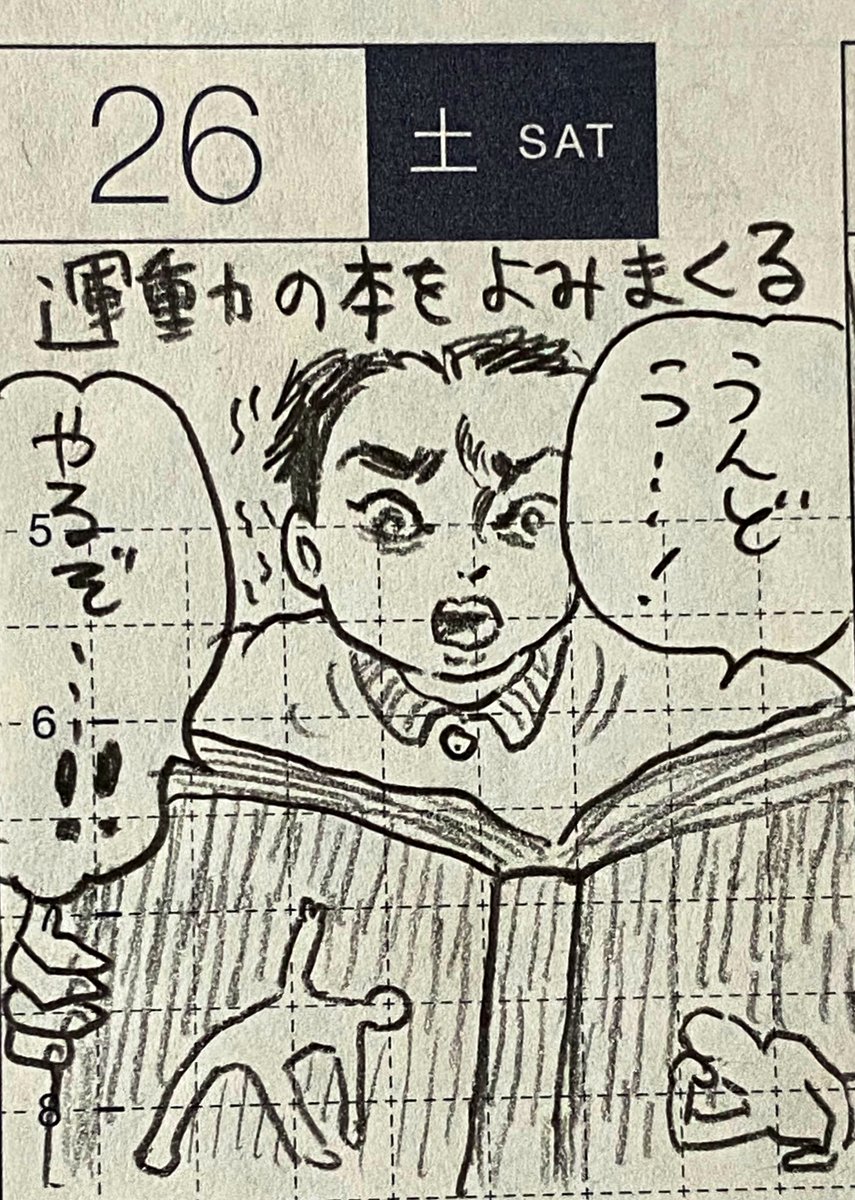 26
土 SAT
運動力の本をよみまくる
うんど
う…！
やるぞ…!!
5
6
8